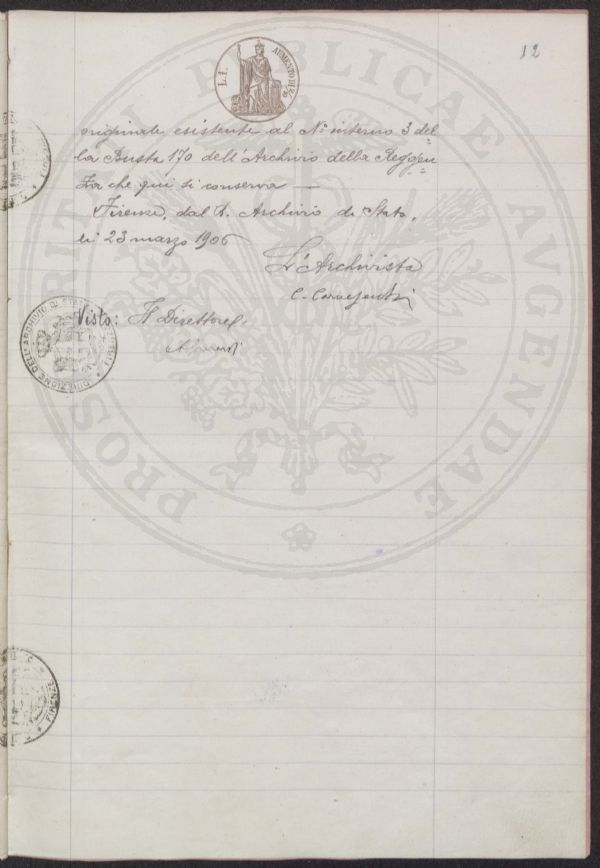 12
L. 1. AUMENTO DI 2/10
originale esistente al N° interno 3 del
la Busta 170 dell'Archivio della Reggen
za che qui si conserva —
Firenze, dal R. Archivio di Stato,
li 23 marzo 1906
L'Archivista
C. Carnesecchi
Visto: Il Direttore
DIREZIONE DELL'ARCHIVIO DI STATO
FIRENZE
PROSPERITATI PUBLICAE AVGENDAE